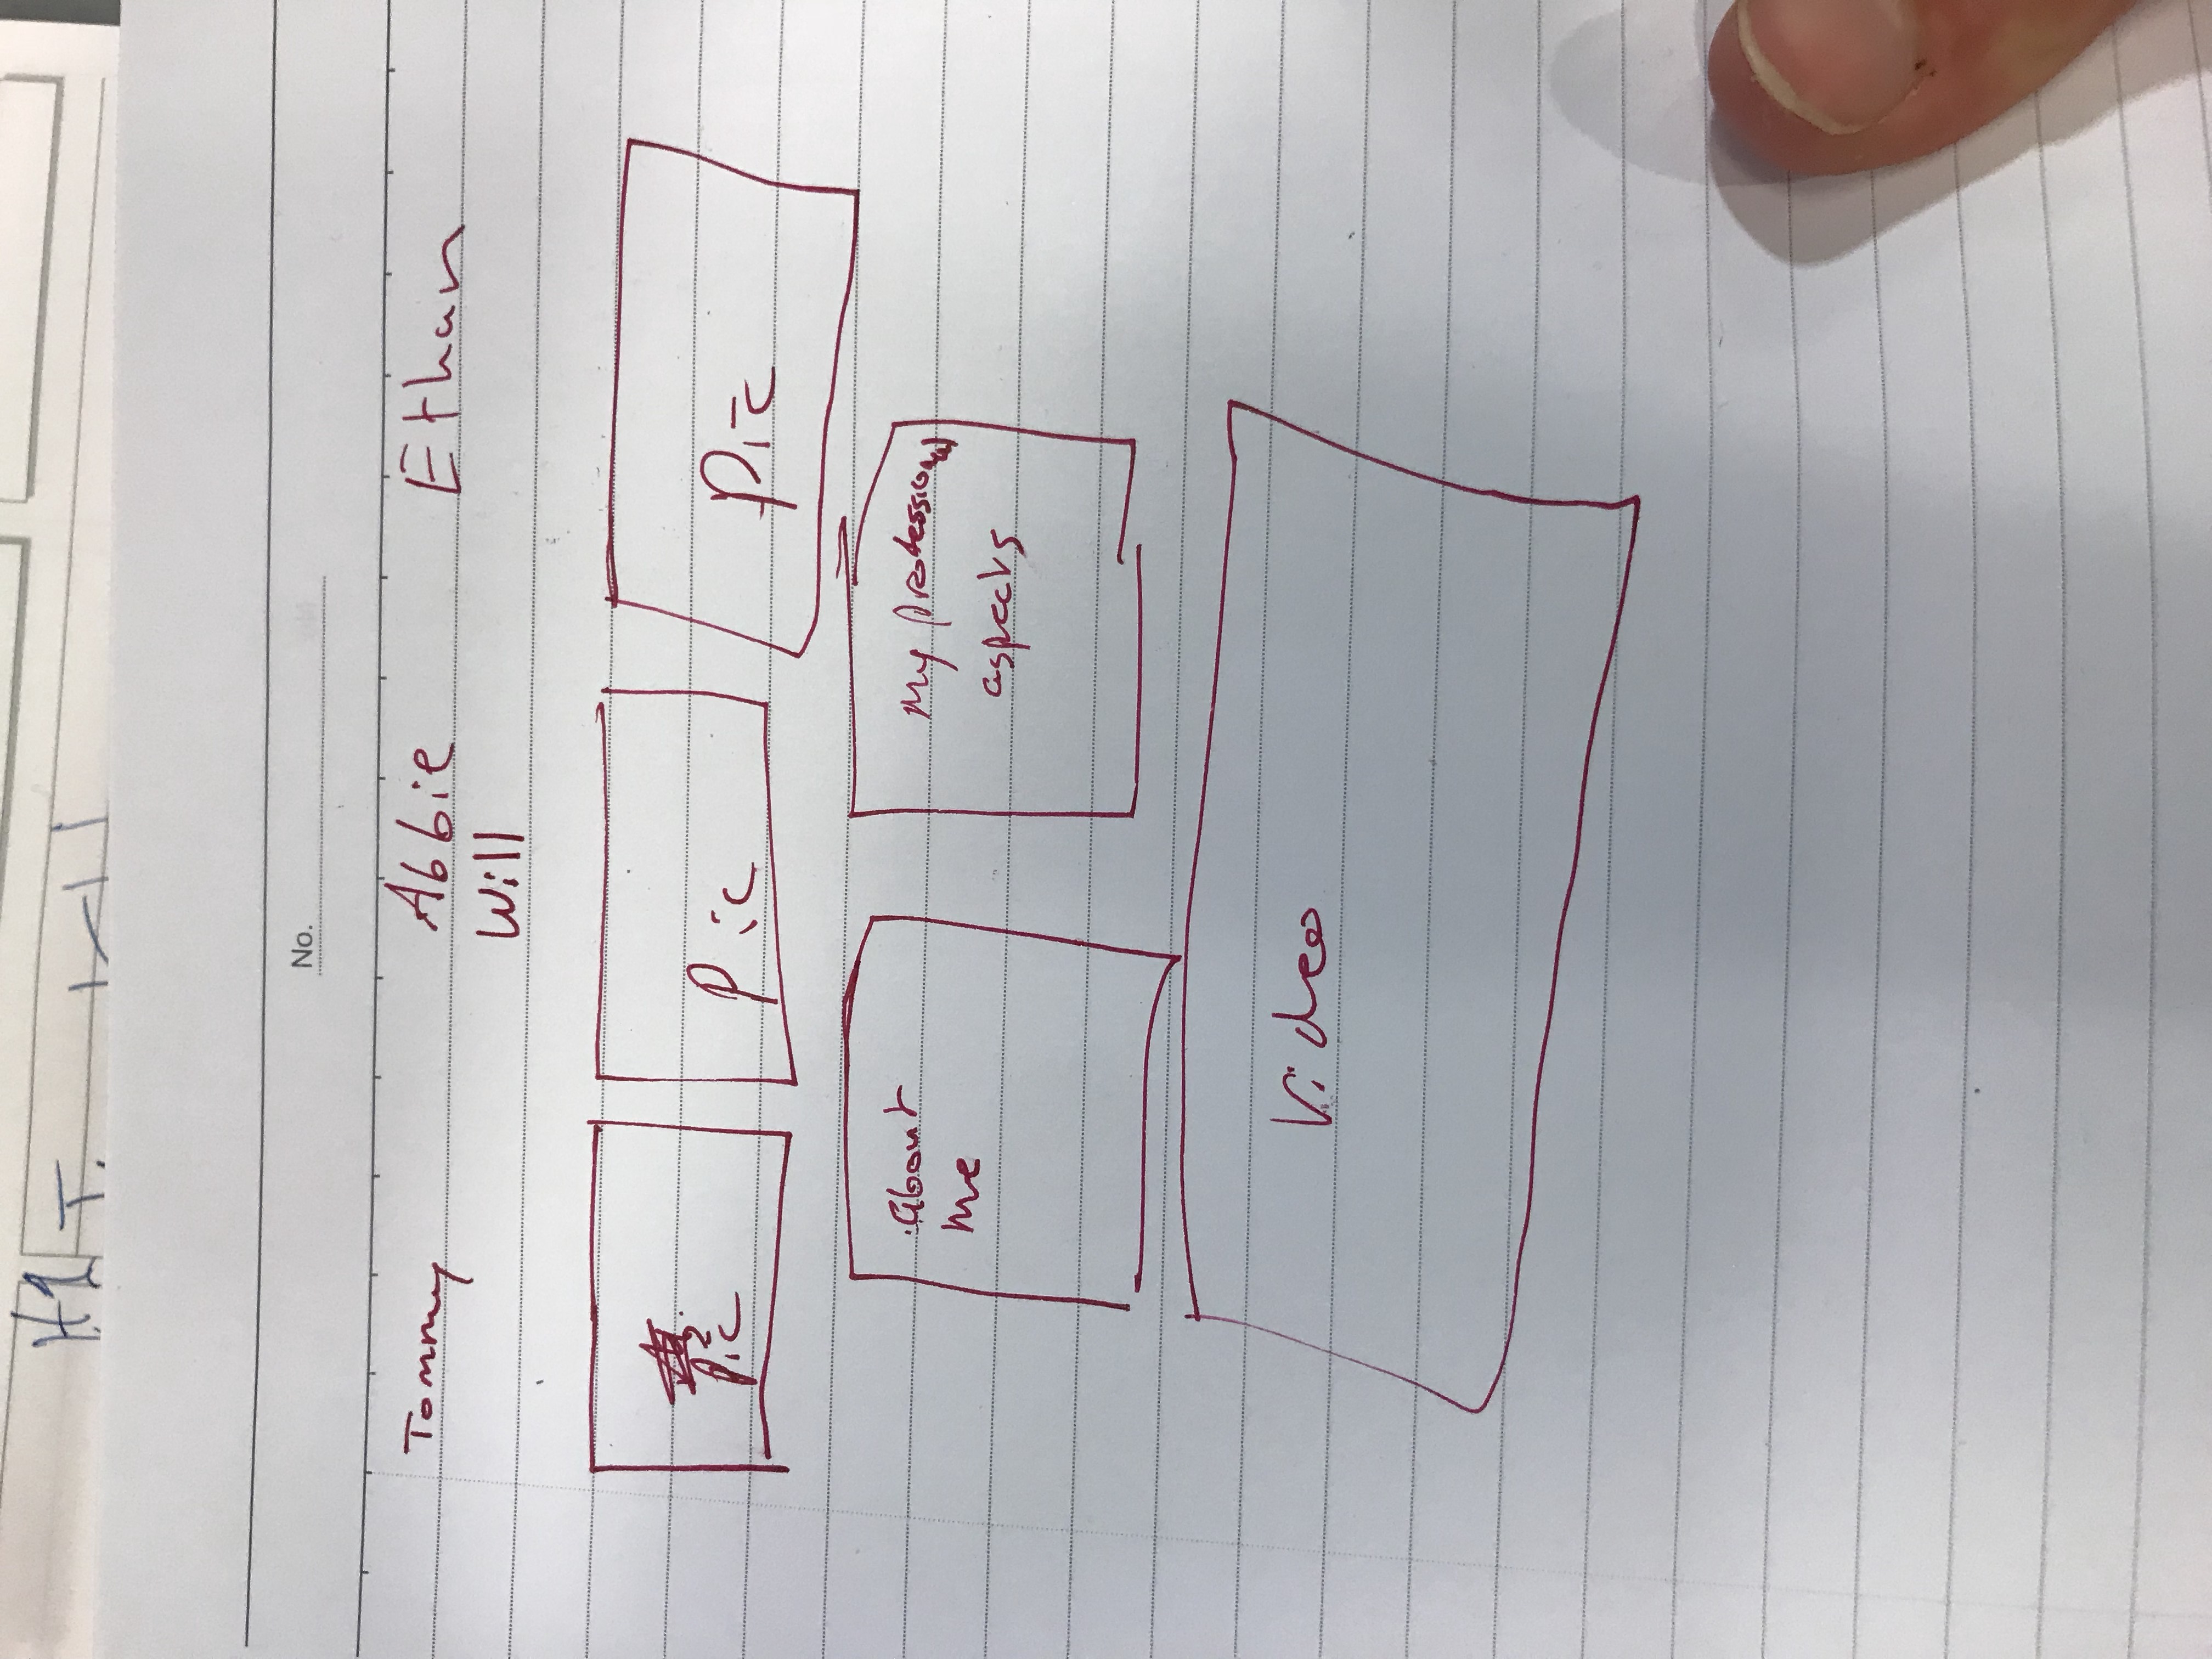 H1
No.
Tommy Abbie Ethan
Will
Pic Pic Pic
About My professional
me aspects
Video